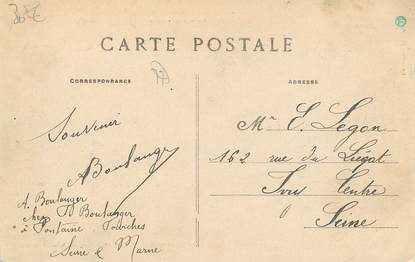 CARTE POSTALE
CORRESPONDANCE
ADRESSE
Souvenir
A Boulanger
A. Boulanger
chez Boulanger
à Fontaine Fourches
Seine & Marne
Mr E. Legon
162 rue du Liégat
Ivry Centre
Seine